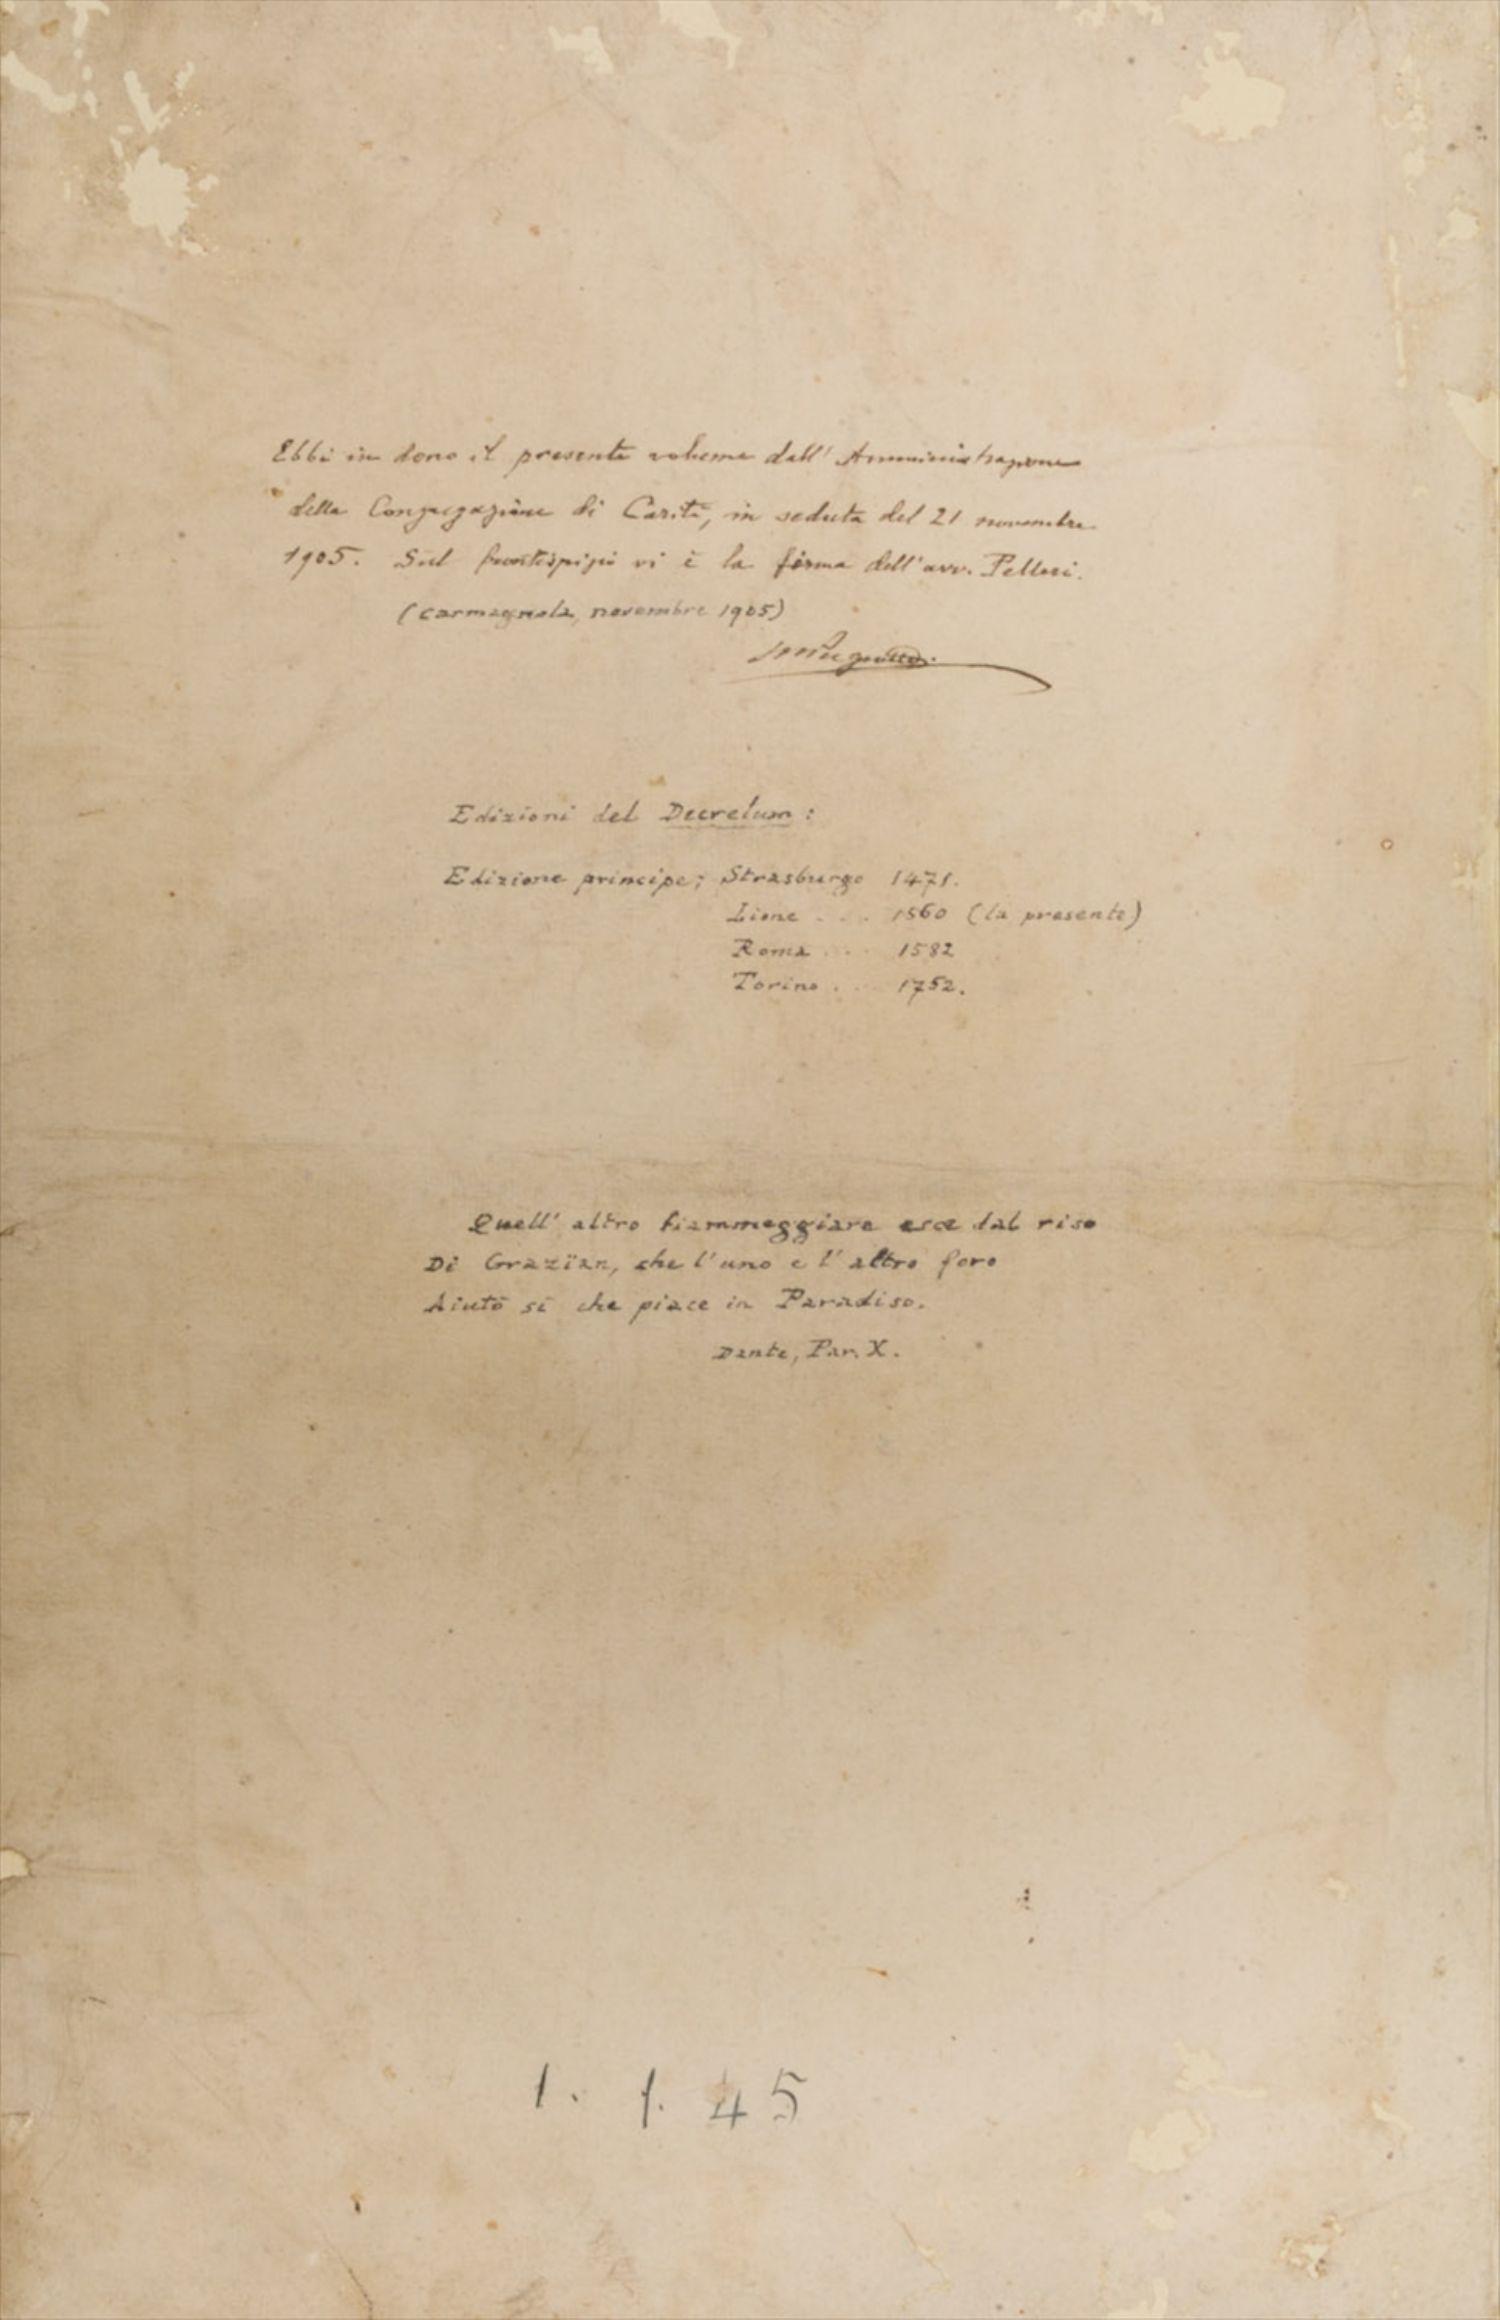 Ebbi in dono il presente volume dall'Amministrazione
della Congregazione di Carità, in seduta del 21 novembre
1905. Sul frontispizio vi è la firma dell'avv. Pelleri.
(Carmagnola, novembre 1905)
Edizioni del Decretum:
Edizione principe; Strasburgo 1471.
Lione . . . 1560 (la presente)
Roma . . . 1582
Torino . . . 1752.
Quell'altro fiammeggiare esce dal riso
Di Grazïan, che l'uno e l'altro foro
Aiutò sì che piace in Paradiso.
Dante, Par. X.
1. 1. 45